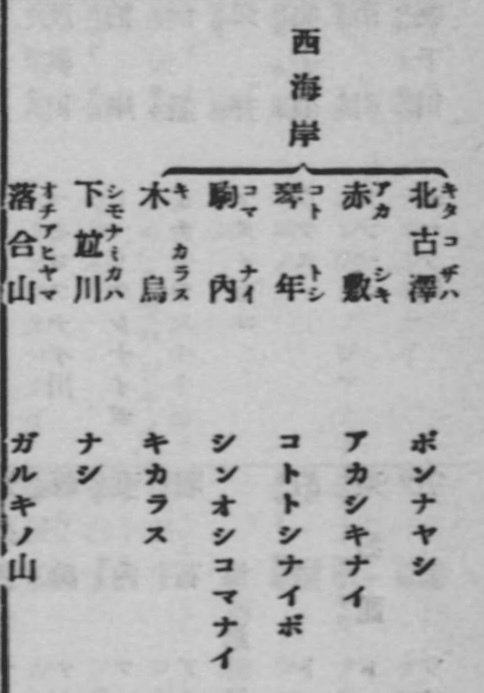 西海岸
北古澤 キタコザハ ポンナヤシ
赤敷 アカシキ アカシキナイ
琴年 コトトシ コトトシナイボ
駒內 コマナイ シンオシコマナイ
木烏 キカラス キカラス
下竝川 シモナミカハ ナシ
落合山 オチアヒヤマ ガルキノ山